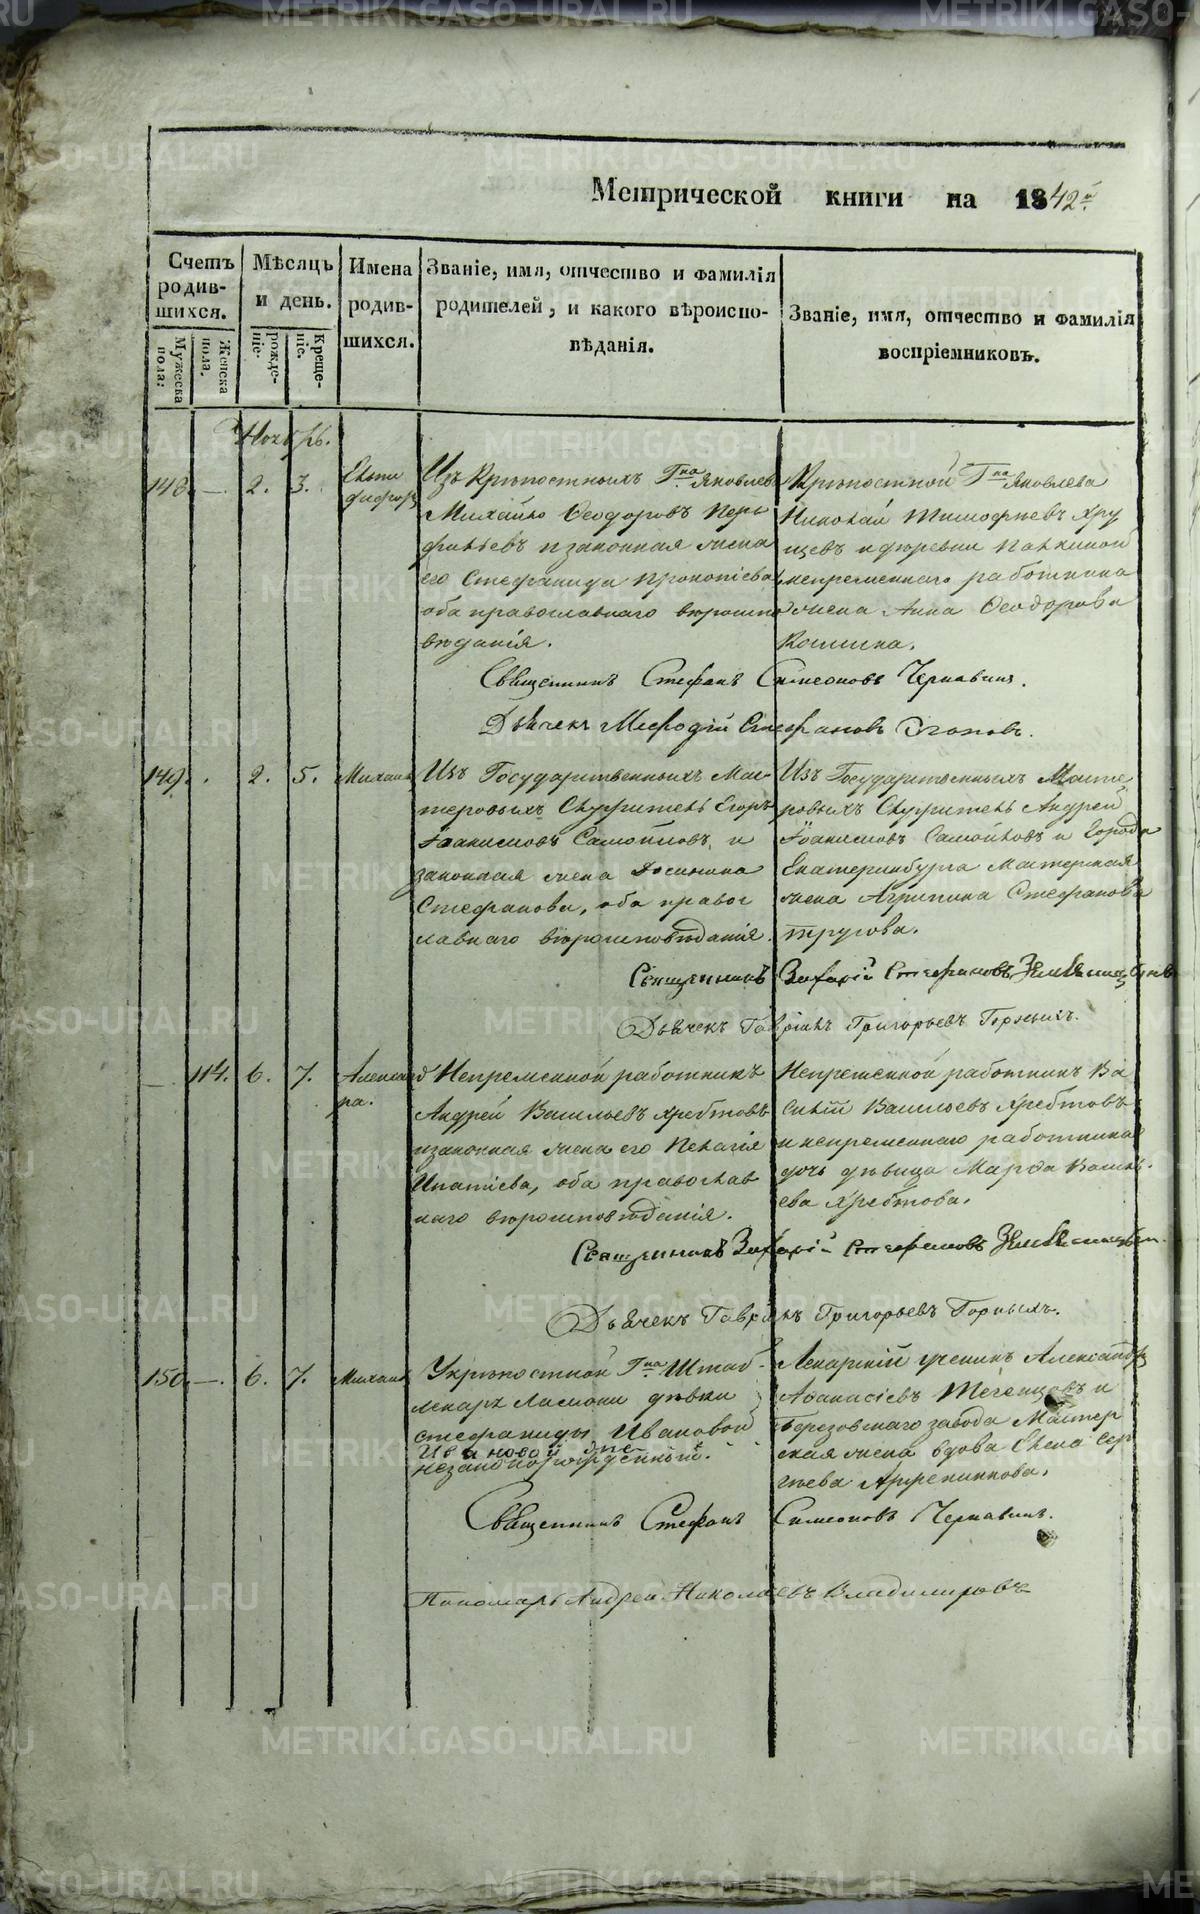 Метрической книги на 1842й
Счетъ родив-шихся.
Мужеска пола:
Женска пола.
Мѣсяцъ и день.
рожде-ніе.
Креще-ніе.
Имена родив-шихся.
Званіе, имя, отчество и фамилія
родителей, и какого вѣроиспо-
вѣданія.
Званіе, имя, отчество и фамилія
воспріемниковъ.
Ноябрь.
148. — 2. 3.
Изъ Крѣпостныхъ Гна Яковлева
Михайло Ѳеодоровъ
и законная жена
его Стефанида Прокопіева
оба православнаго вѣроиспо
вѣданія.
Крѣпостной Гна Яковлева
Николай Тимофѣевъ Хру
щевъ и деревни
непременнаго работника
жена Анна Ѳеодорова
Священникъ Стефанъ Симеоновъ Чернавинъ.
Дьячекъ Меѳодій Стефановъ
149. . 2. 5. Михаилъ
Изъ Государственныхъ Мас-
теровыхъ Егоръ
Іоакимовъ Самойловъ, и
законная жена
Стефанова, оба правос
лавнаго вѣроисповѣданія.
Изъ Государственныхъ Масте
ровыхъ Андрей
Іоакимовъ Самойловъ и города
Екатеринбурга Мастерская
жена Агрипина Стефанова
Священникъ Захарій Стефановъ
Дьячекъ Гавріилъ Григорьевъ Горныхъ.
— 114. 6. 7. Александ
ра.
Непременной работникъ
Андрей Васильевъ Хребтовъ
и законная жена его Пелагія
Ипатіева, оба православ
наго вѣроисповѣданія.
Непременной работникъ Ва
силій Васильевъ Хребтовъ
и непременнаго работника
дочь дѣвица Марѳа Василь-
ева Хребтова.
Священникъ Захарій Стефановъ
Дьячекъ Гавріилъ Григорьевъ Горныхъ.
150. — 6. 7. Михаилъ
У крѣпостной Гна Штаб-
лекаря дѣвки
стефаниды Ивановой
Ивановой
незаконорожденный.
Лекарскій ученикъ Александръ
Аѳанасіевъ и
Березовскаго завода Мастер
ская жена вдова Елена Сер
гѣева
Священникъ Стефанъ Симеоновъ Чернавинъ.
Пономарь Андрей Николаевъ Владимировъ
METRIKI.GASO-URAL.RU